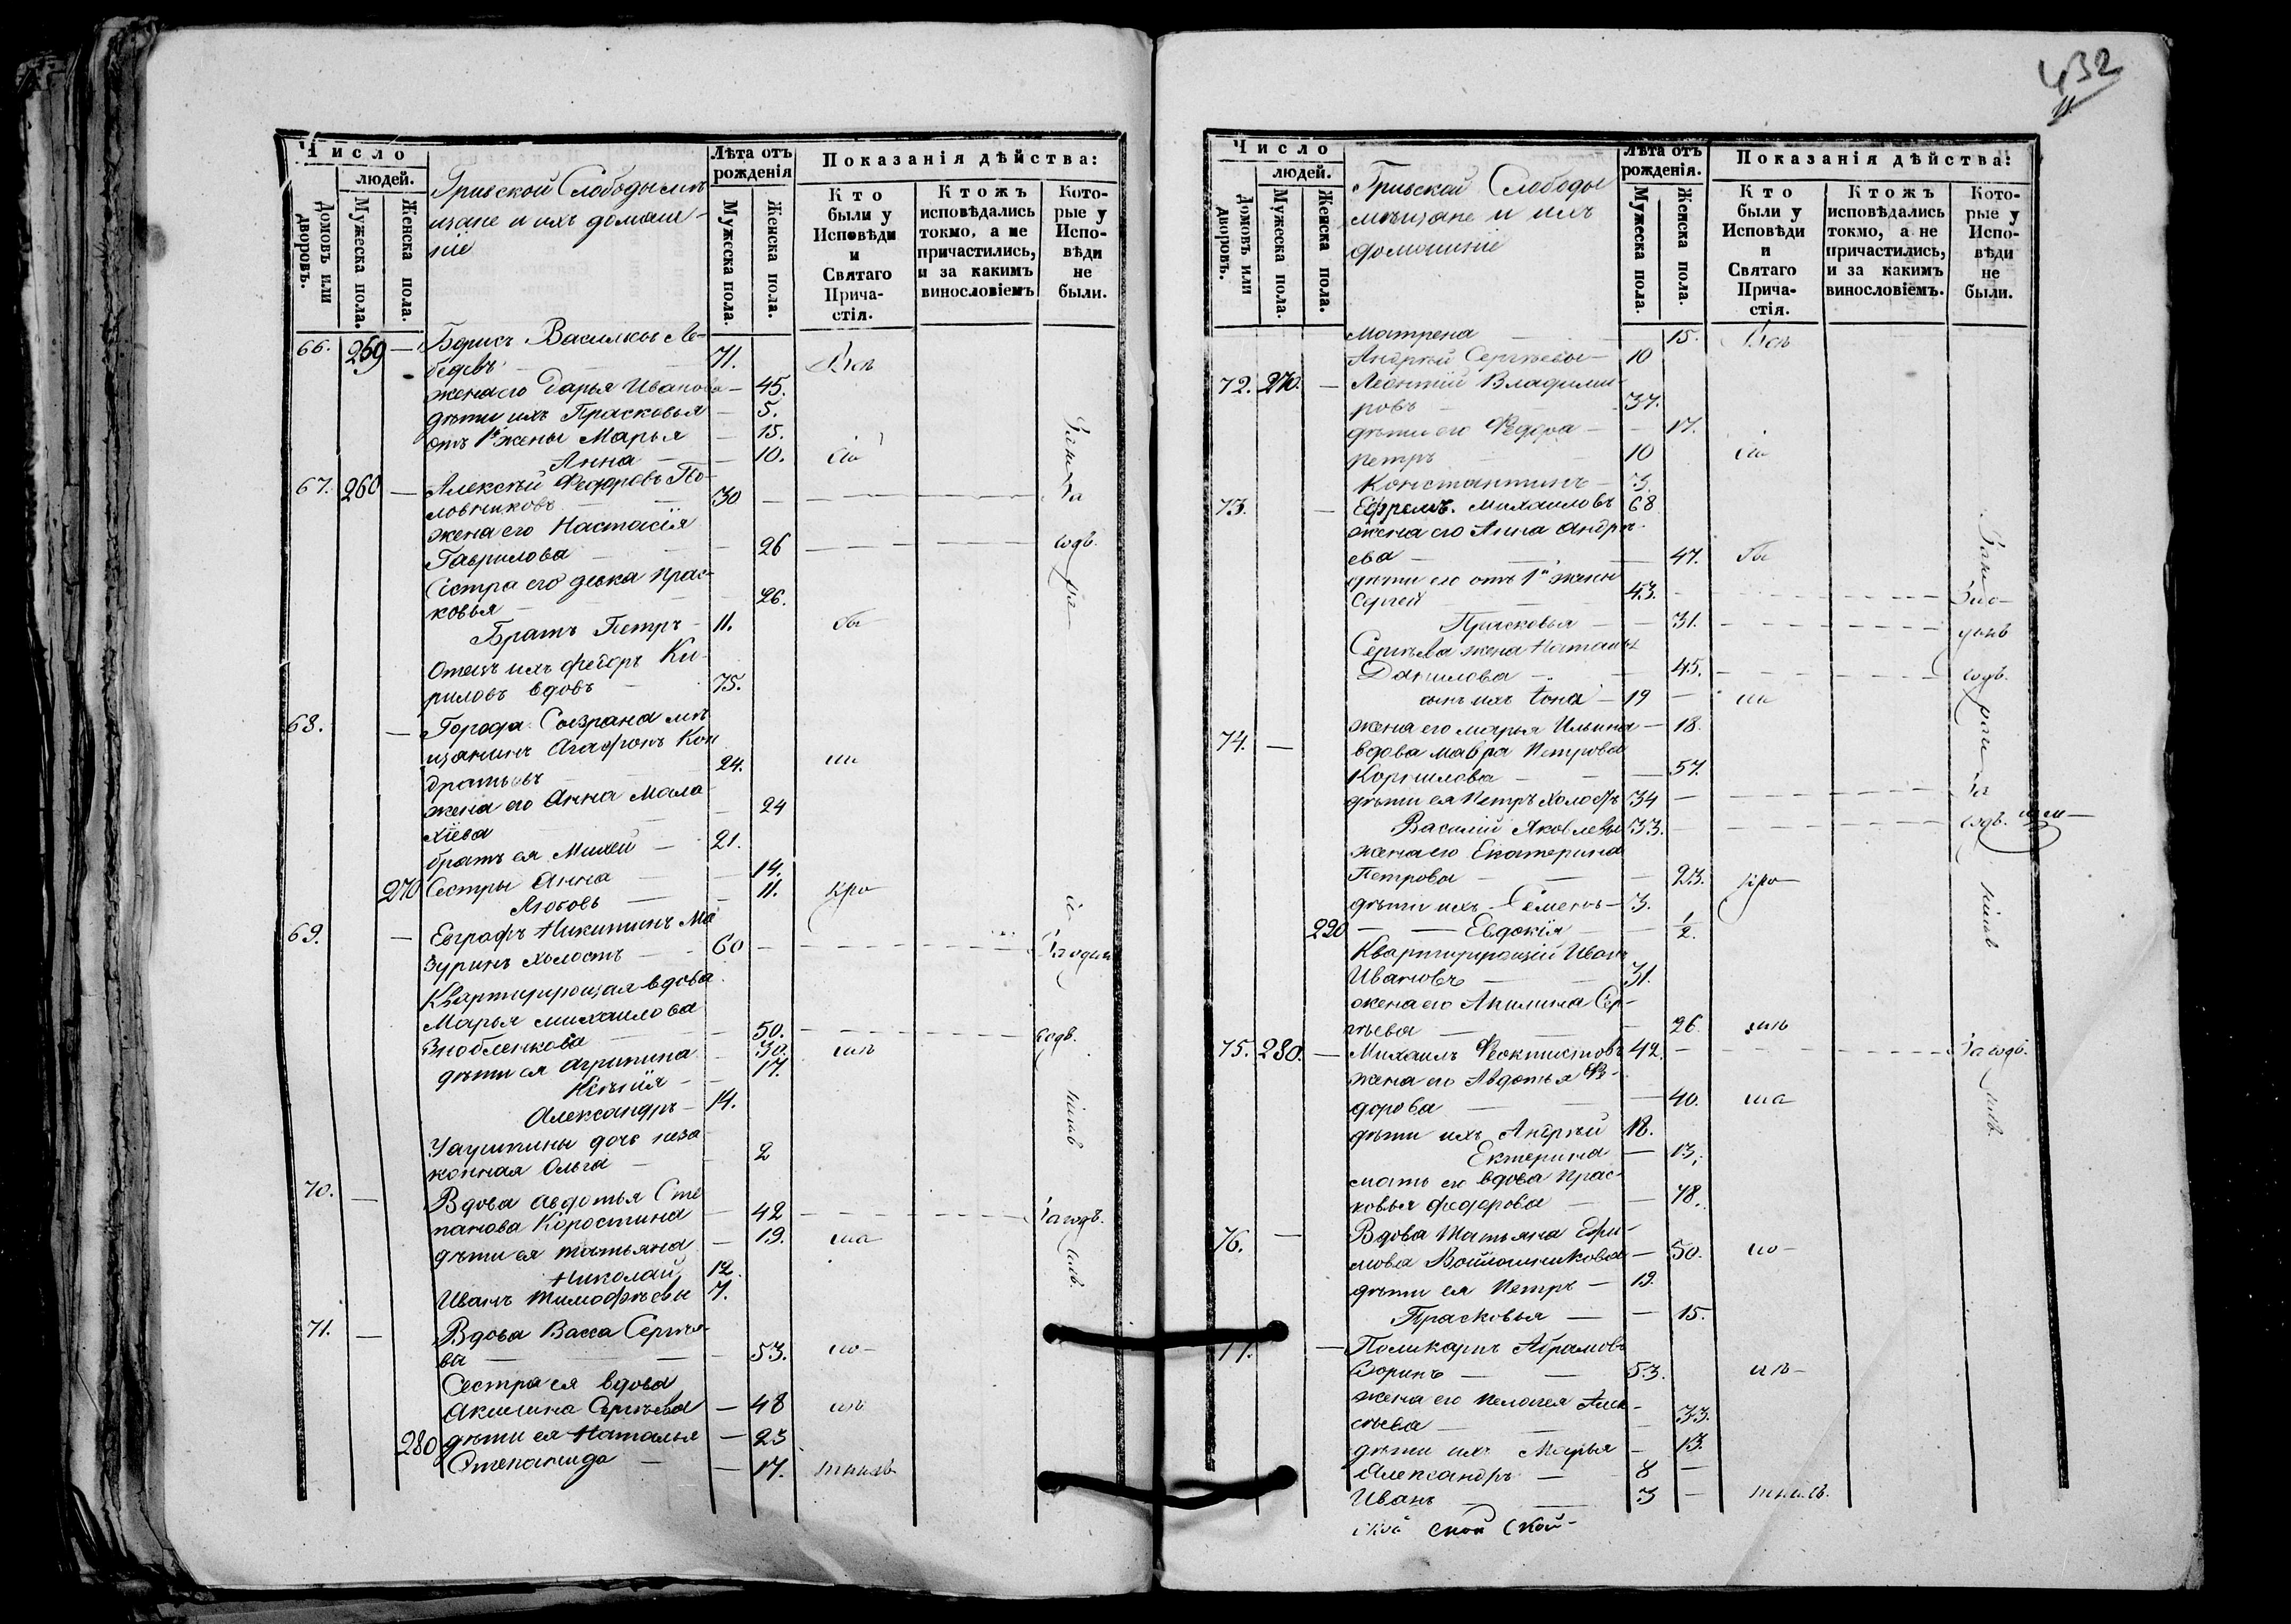 432
Число
людей.
Домовъ или дворовъ.
Мужеска пола.
Женска пола.
Гривской Слободы мѣ-
щане и ихъ домаш-
ніе
Лѣта отъ рожденія
Мужеска пола.
Женска пола.
Показанія дѣйства:
Кто были у Исповѣди и Святаго Прича-стія.
Ктожъ исповѣдались токмо, а не причастились, и за какимъ винословіемъ
Кото-рые у Испо-вѣди не были.
66. 259 —
бедевъ 71.
жена его Дарья Иванова — 45.
дѣти ихъ Прасковья — 5.
отъ 1й жены Марья — 15.
Анна — 10.
67. 260 — Алексѣй Федоровъ По-
ловниковъ 30 — За
жена его Настасія
Гаврилова — 26 — годъ.
Сестра его девка Прас-
ковья — 26.
Братъ Петръ — 11. бы
Отецъ ихъ Федоръ Ки-
риловъ вдовъ — 75.
68. — Города Сызрана мѣ
щанинъ Агафонъ Кон
дратьевъ 24. ли
жена его Анна Мала
хіева — 24
братъ ея Михей — 21.
270 Сестры Анна — 14.
Любовь — 11. при
69. — Евграфъ Никитинъ Ма
зуринъ холостъ — 60 —
Квартирующая вдова
Марья Михаилова
Знобленкова — 50. — годъ.
дѣти ея Агрипина — 30.
Ксенія — 17.
Александръ — 14.
дочь неза
конная Ольга — 2
70. — Вдова Авдотья Сте
панова Коростина — 42 — За годъ.
дѣти ея Татьяна — 19. ща
Николай 12.
Иванъ Тимофѣевы 7.
71. — Вдова Васса Сергѣе
ва — 53. но —
Сестра ея вдова
Акилина Сергѣева — 48
280 дѣти ея Наталья — 23
Степанида — 17.
Число
людей.
Домовъ или дворовъ.
Мужеска пола.
Женска пола.
Гривской Слободы
мѣщане и ихъ
домашніе
Лѣта отъ рожденія.
Мужеска пола.
Женска пола.
Показанія дѣйства:
Кто были у Исповѣди и Святаго Прича-стія.
Ктожъ исповѣдались токмо, а не причастились, и за какимъ винословіемъ.
Кото-рые у Испо-вѣди не были.
Матрена — 15. Всѣ
Андрей Сергѣевы — 10
72. 270. — Леонтій Владими
ровъ — 37.
дѣти его Федора — 17.
Петръ 10
Константинъ — 3.
73. — Ефремъ Михаиловъ 68
жена его Анна Андре-
ева — 47. бы
дѣти его отъ 1й жены
Сергей 43. —
Прасковья — 31. —
Сергѣева жена Наталья
Данилова — 45. — годъ.
сынъ ихъ Іона — 19 — ли
жена его Марья Ильина — 18.
74. — вдова Мавра Петрова
Корнилова — 57.
дѣти ея Петръ холостъ 34 — За
Василій Яковлевы 33. — годъ.
жена его Екатерина
Петрова — 23. при
дѣти ихъ Семенъ — 3.
290 — Евдокія — 1/2.
Квартирующій Иванъ
Ивановъ — 31.
жена его Акилина Сер-
гѣева — 26.
75. 280. — Михаилъ Феоктистовъ 42. — За годъ.
жена его Авдотья Фе-
дорова — 40. ща
дѣти ихъ Андрей 18.
Екатерина — 13.
мать его вдова Прас-
ковья Федорова — 78.
76. — Вдова Татьяна Ефи-
мова Войлошникова — 50. но —
дѣти ея Петръ — 19.
Прасковья — 15.
77. — Поликарпъ Абрамовъ
53.
жена его Пелагея Алек-
сѣева — 33.
дѣти ихъ Марья — 13.
Александръ — 8 —
Иванъ — 3 —
ской ской ской —